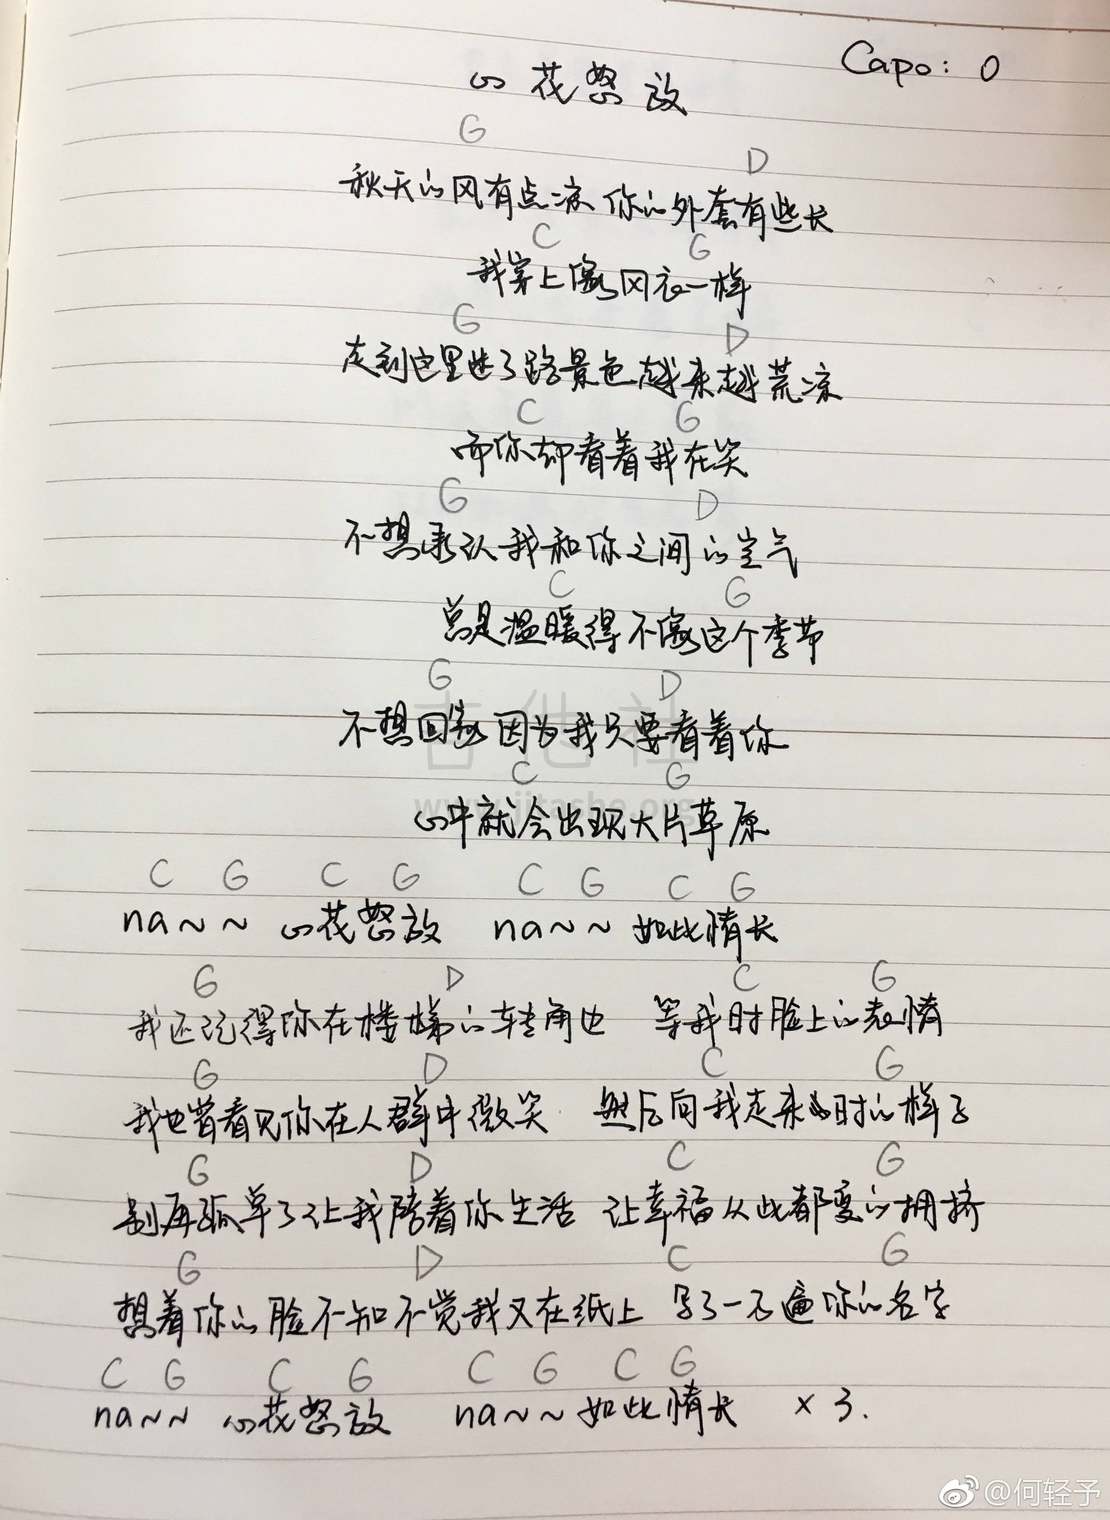 Capo: 0
心花怒放
G D
秋天的风有点凉 你的外套有些长
C G
我穿上像风衣一样
G D
走到这里迷了路景色越来越荒凉
C G
而你却看着我在笑
G D
不想承认我和你之间的空气
C G
总是温暖得不像这个季节
G D
不想回家因为我只要看着你
C G
心中就会出现大片草原
C G C G C G C G
na~~ 心花怒放 na~~ 如此情长
G D C G
我还记得你在楼梯的转角边 等我时脸上的表情
G D C G
我也曾看见你在人群中微笑 然后向我走来时的样子
G D C G
别再孤单了让我陪着你生活 让幸福从此都变的拥挤
G D C G
想着你的脸不知不觉我又在纸上 写了一百遍你的名字
C G C G C G C G
na~~ 心花怒放 na~~ 如此情长 × 3.
吉他社
www.jitashe.org
@何轻予